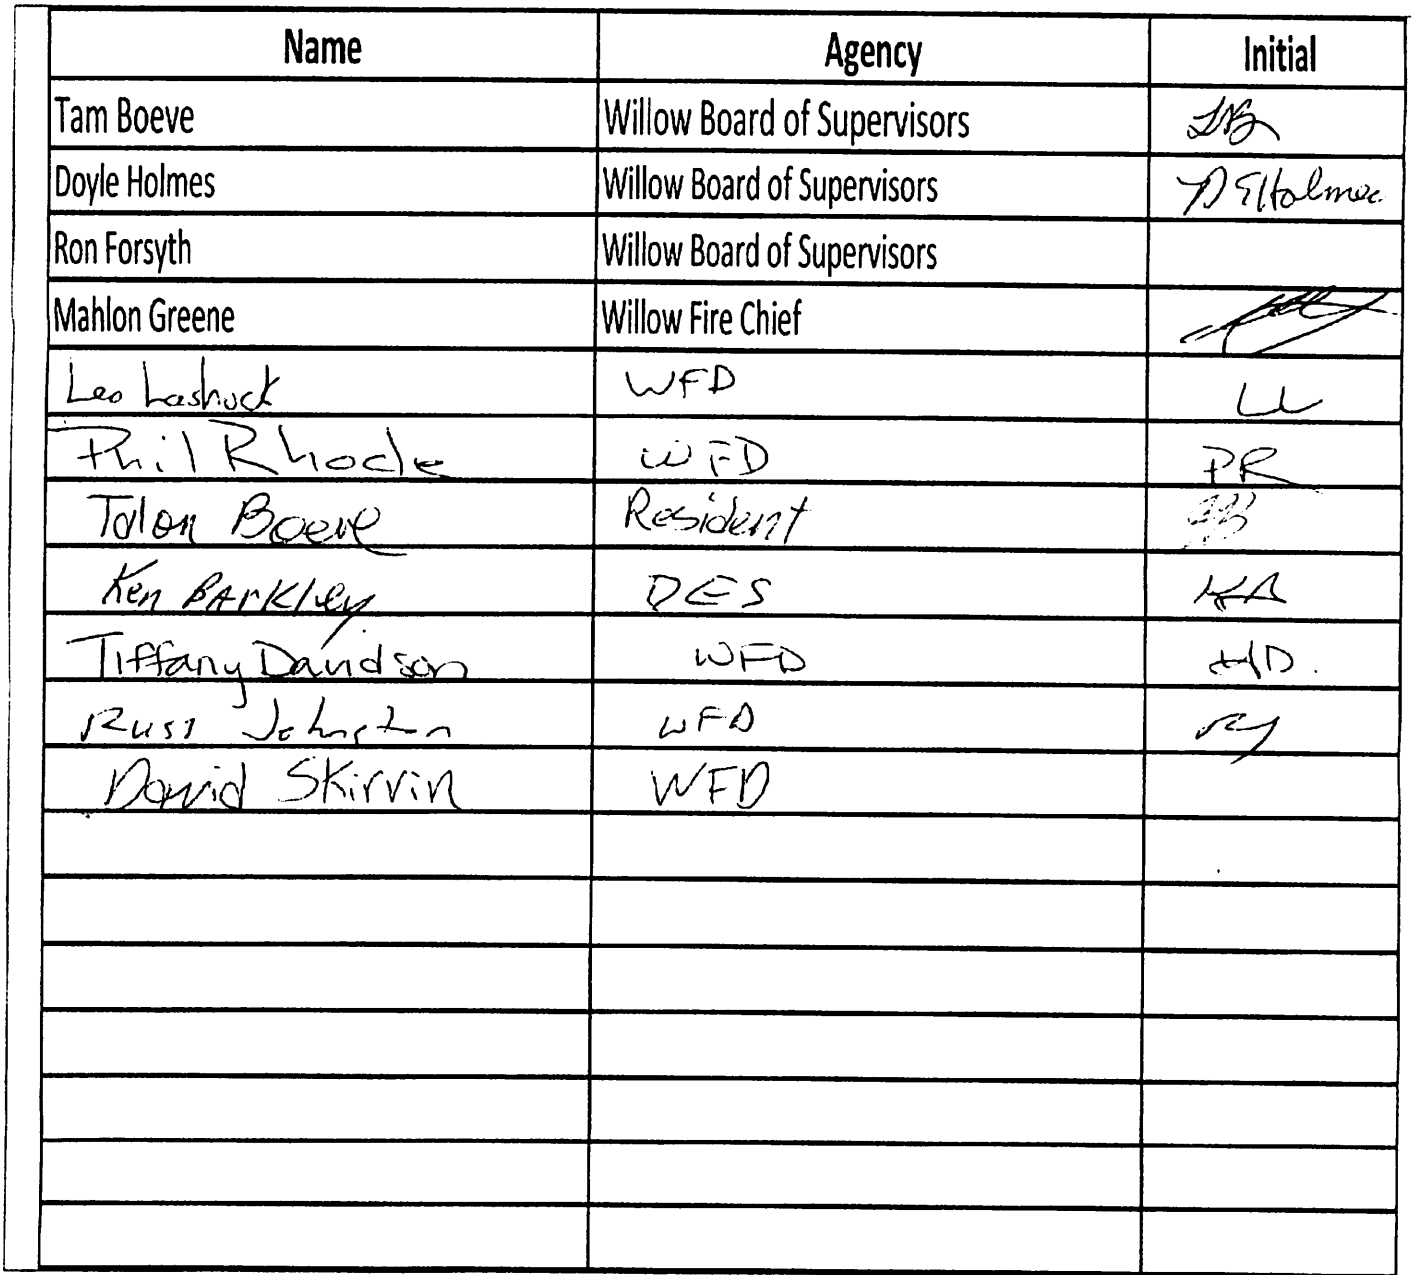 Name Agency Initial
Tam Boeve Willow Board of Supervisors TB
Doyle Holmes Willow Board of Supervisors D E Holmes
Ron Forsyth Willow Board of Supervisors
Mahlon Greene Willow Fire Chief
Leo Lashock WFD LL
Phil Rhode WFD PR
Talon Boeve Resident
Ken BArkley DES KB
Tiffany Davidson WFD
Russ Johnston WFD RJ
David Skirvin WFD